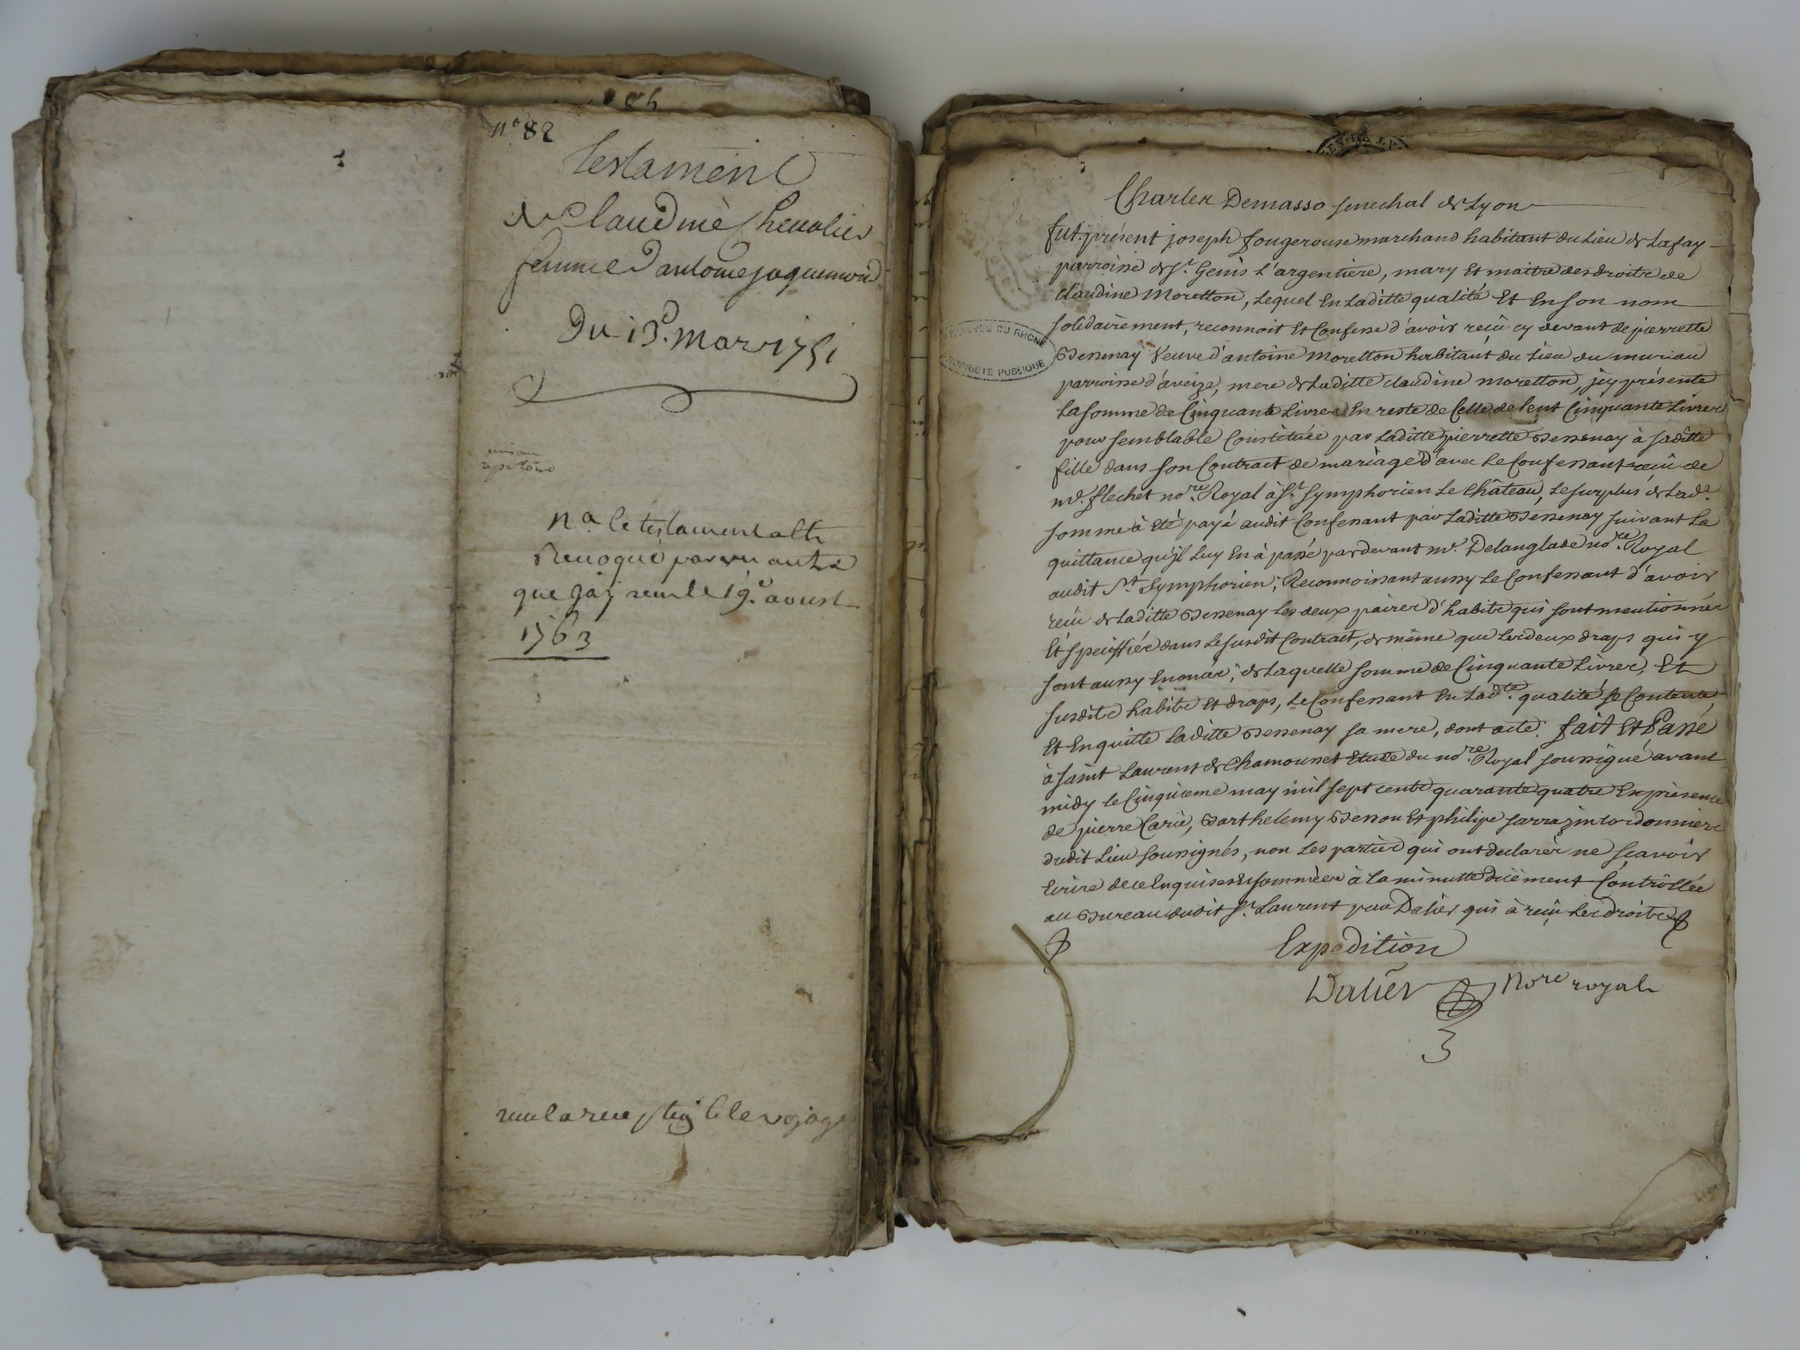 n° 82
testament
de Claudine Chevalier
femme d'antoine jaquemond
Du 13e. Mars 1751
au
repertoire
na. le testament a été
Revoqué par un autre
que j'ay receu le 19e. aoust
1763
receu la reception & le voyage
Charles Demasso senechal de Lyon
fut présent joseph fougerouse marchand habitant du Lieu de Lafay
parroisse de St. Genis L'argentiere, mary Et maitre des droits de
Claudine Moretton, Lequel En Laditte qualité Et En son nom
solidairement, reconnoit Et Confesse d'avoir reçû cy devant de pierrette
Bessenay Veuve d'antoine Moretton habitant du Lieu du muriau
parroisse d'aveize, mere de Laditte claudine moretton, jcy présente
La somme de Cinquante Livres En reste de Celle de Cent Cinquante Livres
pour semblable Constituée par Laditte pierrette Bessenay à saditte
fille dans son Contract de mariage d'avec Le Confessant reçû de
me. flechet nore. Royal à St. Symphorien Le Château, Le surplus de Lade.
somme à été payé audit Confessant par Laditte Bessenay suivant La
quittance qu'jl Luy En à passé pardevant me. Delanglade nore. Royal
audit St. Symphorien; Reconnoissant aussy Le Confessant d'avoir
reçu de Laditte Bessenay Les deux paires d'habits qui sont mentionnés
Et speciffiés dans Le susdit Contract, de même que Les deux draps qui y
sont aussy Enoncés; de Laquelle somme de Cinquante Livres, Et
susdits habits Et draps, Le Confessant En Ladte. qualité se Contente,
Et En quitte Laditte Bessenay sa mere, dont acte. fait Et Passé
à Saint Laurent de Chamousset Etude du nore. Royal soussigné avant
midy le Cinquieme may mil sept cents quarante quatre En présence
de pierre Carié, Barthelemy Besson Et philipe sarrazin cordonniers
dudit Lieu soussignés, non Les parties qui ont declarés ne sçavoir
Ecrire de ce Enquises Et sommées à La minutte düement Contrôllée
au Bureau dudit St. Laurent par Dalier qui à reçu Les droits
Expedition
Dalier Nore royal
ARCHIVES DU RHÔNE
PROPRIÉTÉ PUBLIQUE